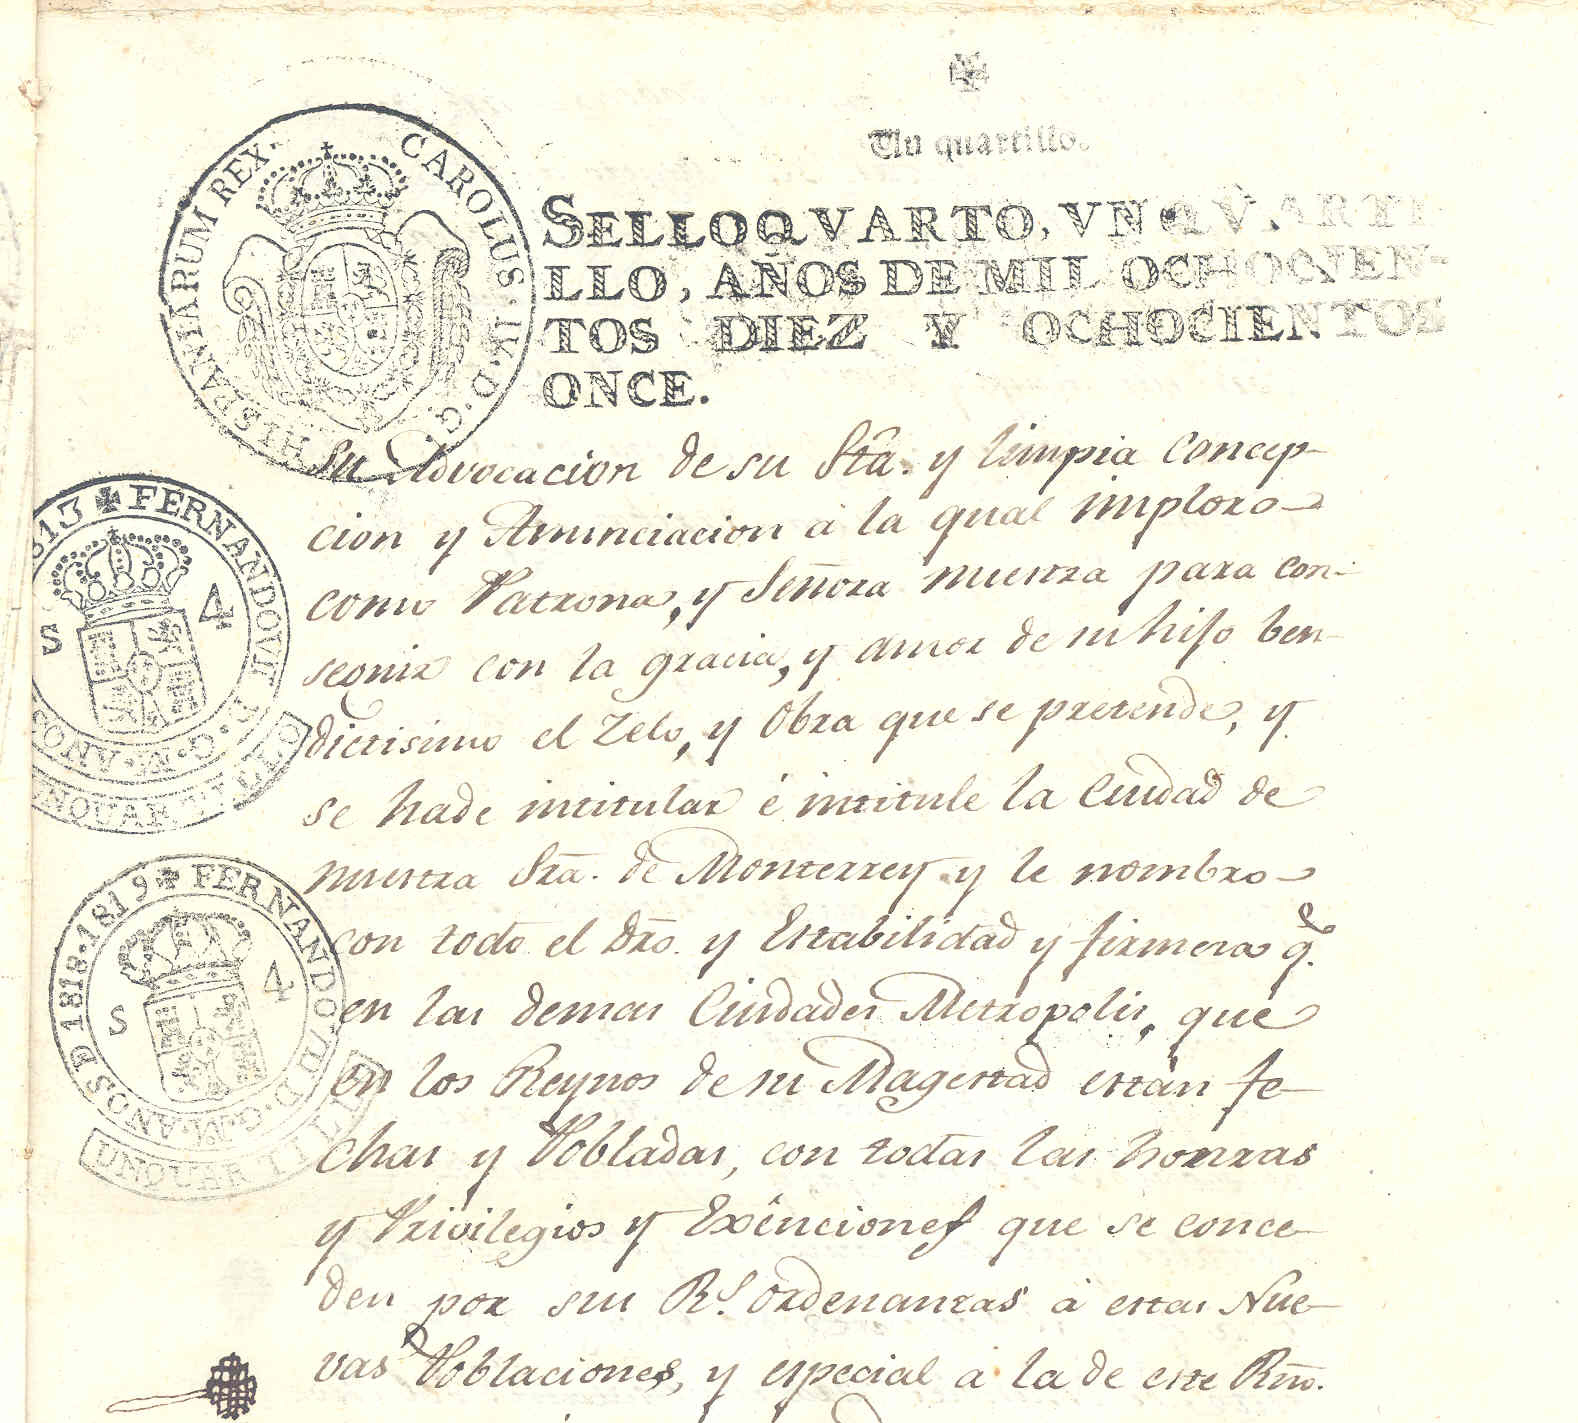 Un quartillo.
SELLO QVARTO, VN QVARTI
LLO, AÑOS DE MIL OCHOCIEN-
TOS DIEZ Y OCHOCIENTOS
ONCE.
CAROLUS·IV·D·G·
HISPANIARUM REX·
Su Advocacion de su Sta. y limpia Concep-
cion y Anunciacion à la qual imploro
como Patrona, y Señora nuestra para con-
seguir con la gracia, y amor de su hijo ben-
dictisimo el Zelo, y Obra que se pretende, y
se hade intitular é intitule la Ciudad de
nuestra Sra. de Monterrey y le nombro
con todo el Dro. y Estabilidad y firmeza q.e
en las demas Ciudades Metropolis, que
en los Reynos de su Magestad están fe-
chas y Pobladas, con todas las honras
y Privilegios y Exênciones que se conce-
den por sus R.s ordenanzas à estas Nue-
vas Poblaciones, y especial à la de este Rno.
813 ✠ FERNANDO VII D.G.
ANOS
S 4
UN QUARTILLO
1818·1819 ✠ FERNANDO·VII D·G·
ANOS D
S 4
UN QUARTILLO